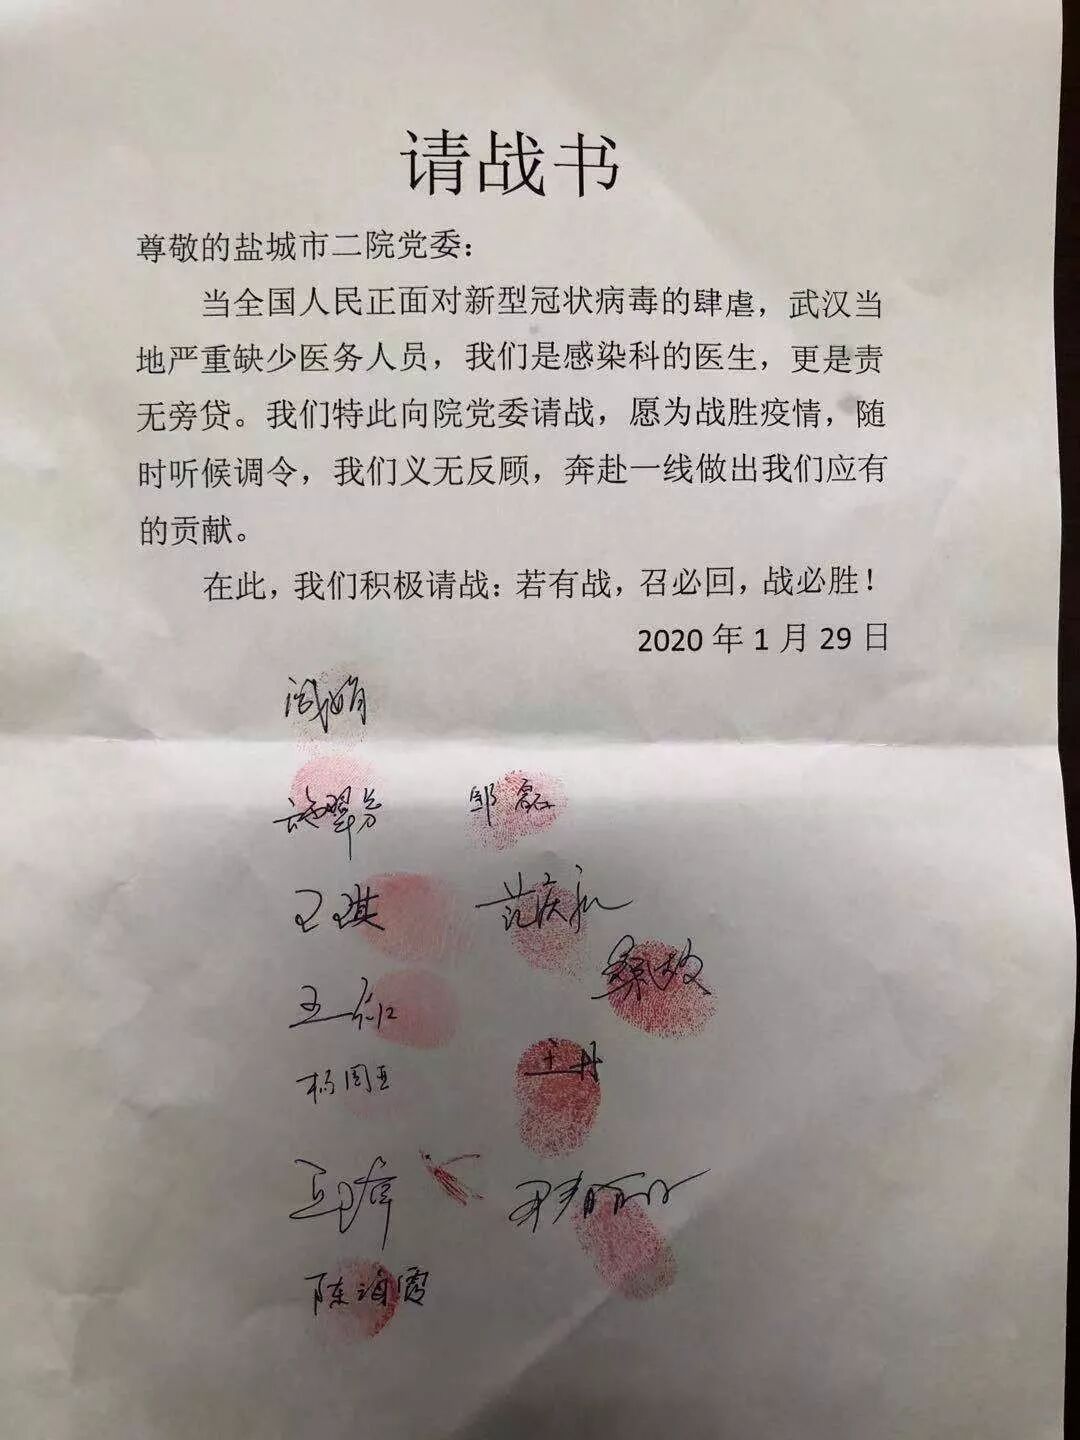 请战书
尊敬的盐城市二院党委：
当全国人民正面对新型冠状病毒的肆虐，武汉当
地严重缺少医务人员，我们是感染科的医生，更是责
无旁贷。我们特此向院党委请战，愿为战胜疫情，随
时听候调令，我们义无反顾，奔赴一线做出我们应有
的贡献。
在此，我们积极请战：若有战，召必回，战必胜！
2020 年 1 月 29 日
邹磊
王琪
桑敏
杨周亚
王丹
陈海霞